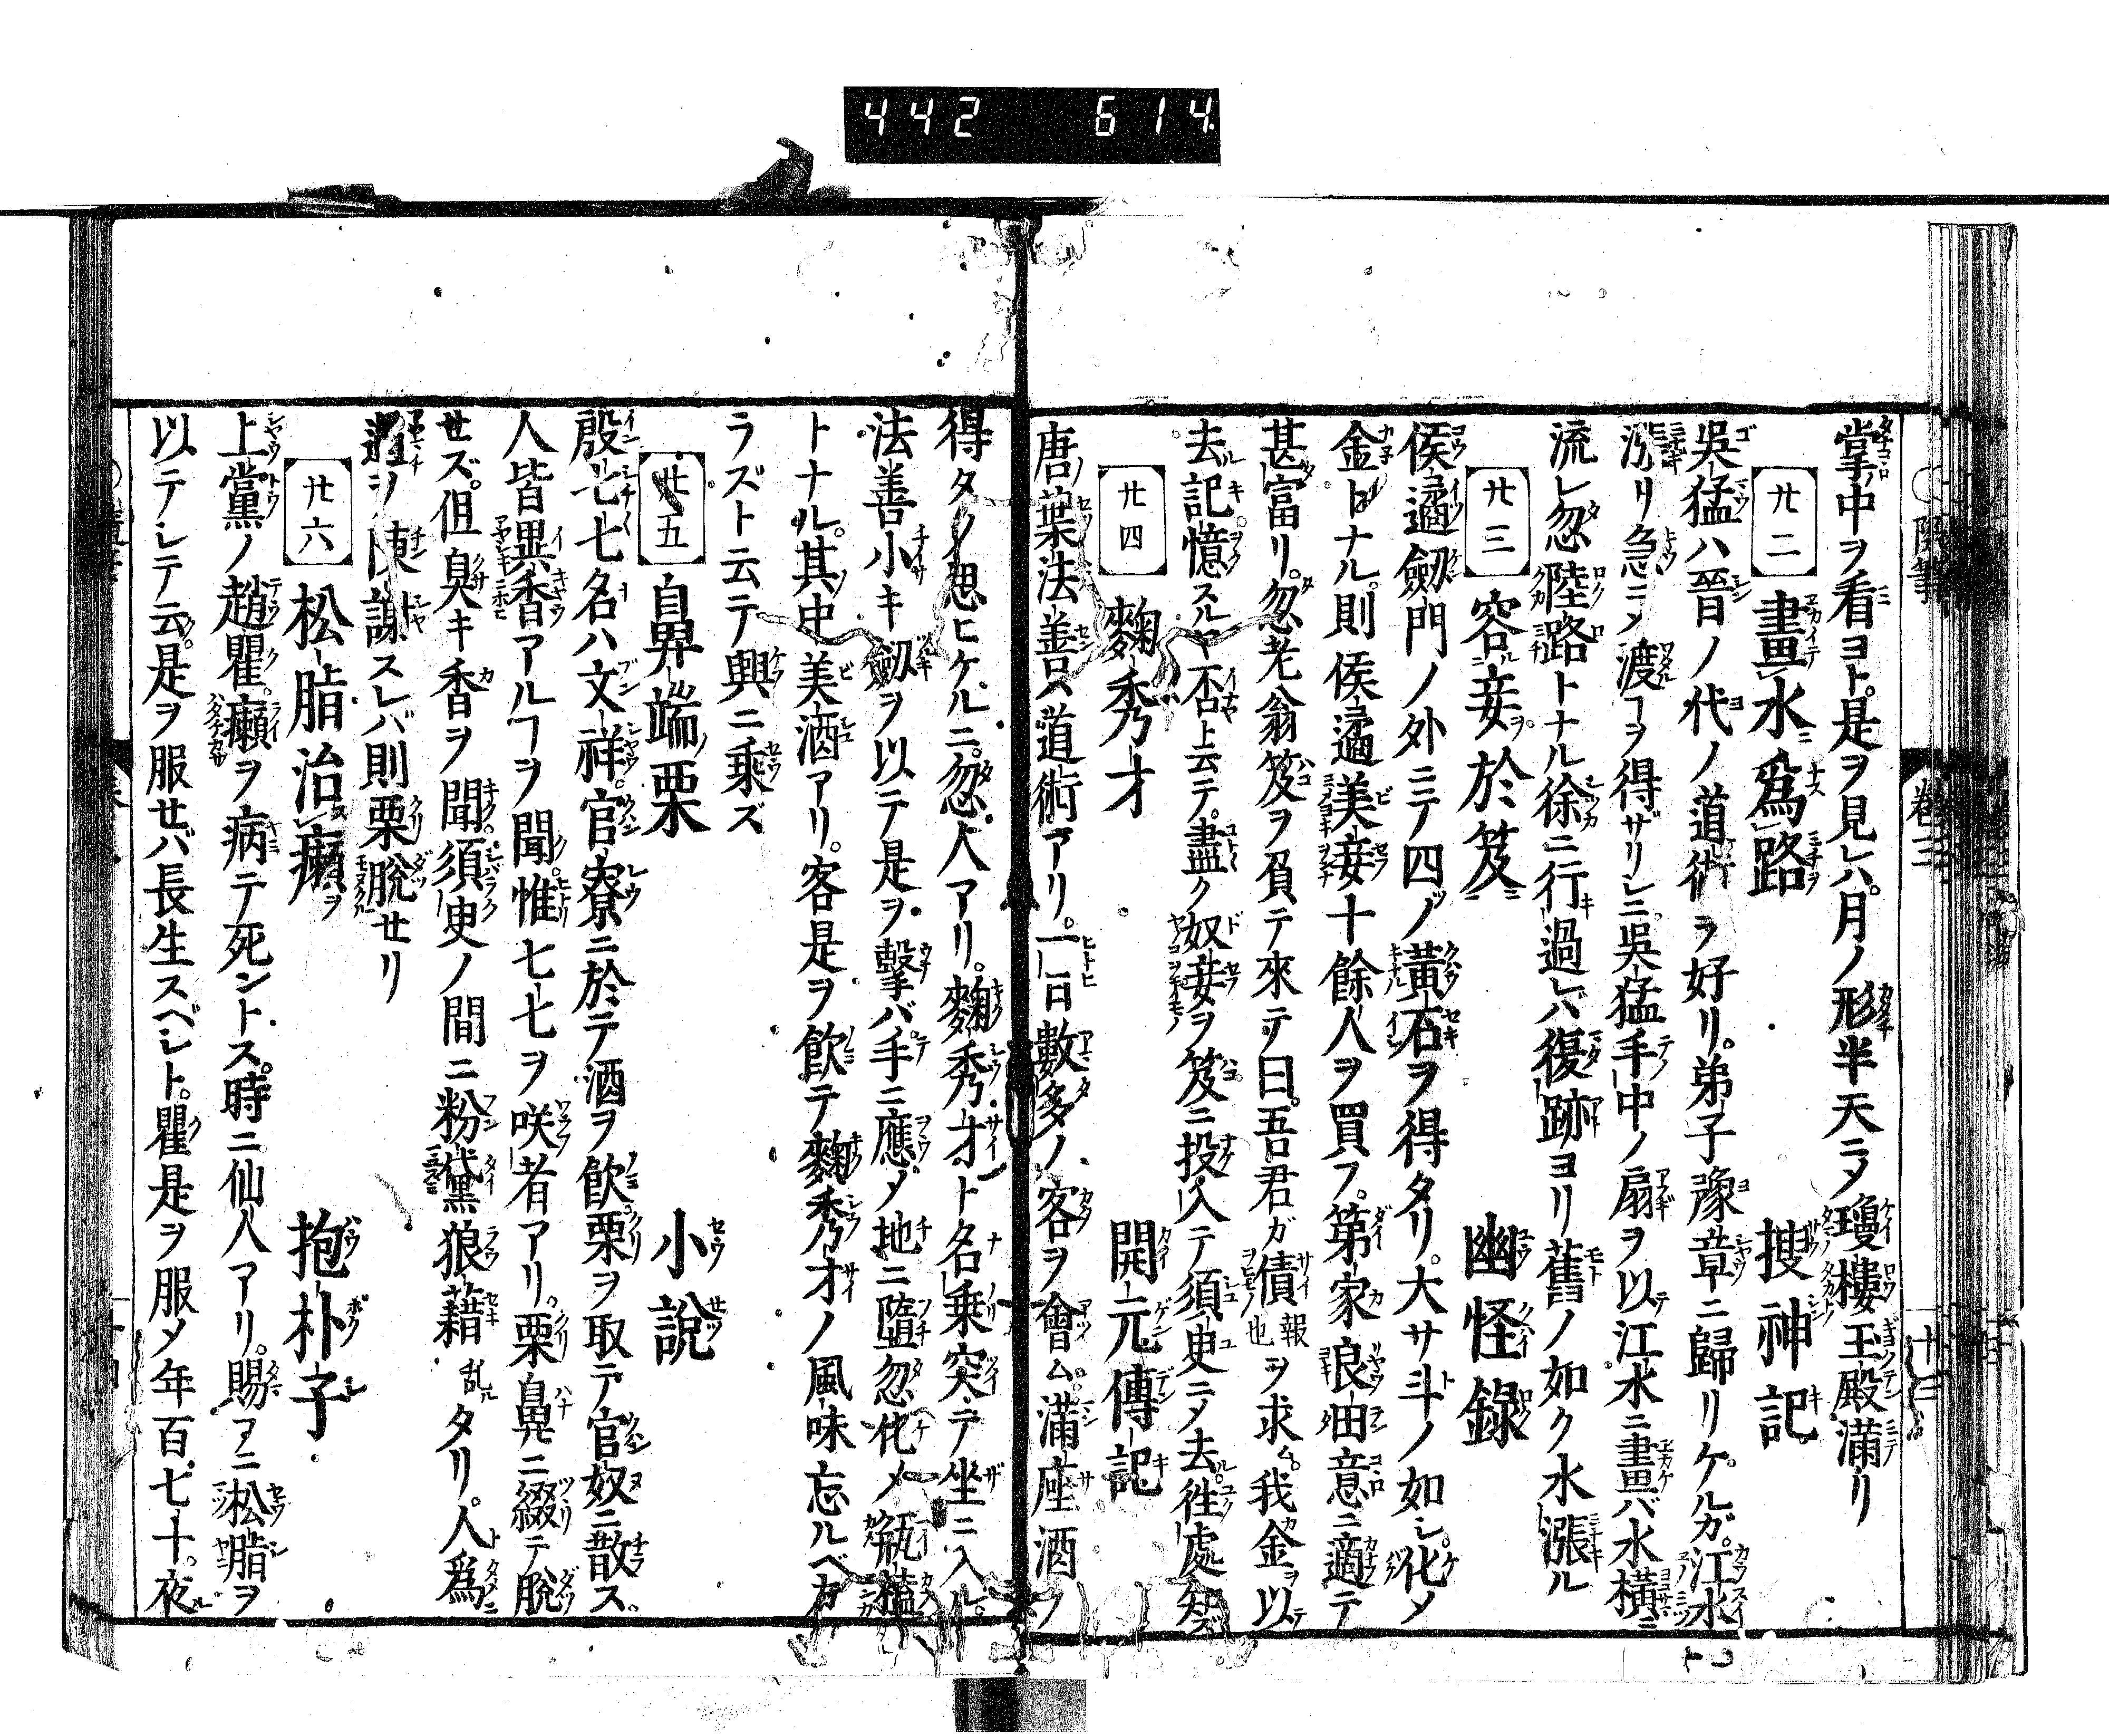 442 614
掌中ヲ看ヨト。是ヲ見レバ。月ノ形半天ニメ瓊樓玉殿滿リ
廿二 畫水爲路 搜神記
吳猛ハ晉ノ代ノ道術ヲ好リ。弟子豫章ニ歸リケルガ。江水
漲リ急ニメ渡ヿヲ得ザリシニ。吳猛手中ノ扇ヲ以テ江水ニ畫バ水橫ニ
流レ忽陸路トナル徐ニ行過レバ復跡ヨリ舊ノ如ク水漲ル
廿三 容妾於笈 幽怪錄
侯遹劔門ノ外ニテ四ツノ黃石ヲ得タリ。大サ斗ノ如シ。化メ
金トナル。則侯遹美妾十餘人ヲ買フ。第家良田意ニ適テ
甚富リ。忽老翁笈ヲ負テ來テ曰。吾君ガ債報也ヲ求ム。我金ヲ以テ
去記憶スルヤ不上云テ。盡ク奴妾ヲ笈ニ投入テ須臾ニメ去。徃處知ズ
廿四 麴秀才 開元傳記
唐ノ葉法善ハ道術アリ。一日數多ノ客ヲ會ム。滿座酒ノ
得タノ思ヒケルニ。忽人アリ。麴秀才ト名乗突テ坐ニ入ル。
法善小キ劔ヲ以テ是ヲ擊バ手ニ應メ地ニ墮忽化メ瓶榼
トナル。其中美酒アリ。客是ヲ飮テ麴秀才ノ風味忘ルベカ
ラズト云テ興ニ乗ズ
廿五 鼻端栗 小說
殷七七名ハ文祥。官寮ニ於テ酒ヲ飮。栗ヲ取テ官奴ニ散ス。
人皆異香アルヿヲ聞。惟七七ヲ咲者アリ。栗鼻ニ綴テ脫
セズ。但臭キ香ヲ聞。須臾ノ間ニ粉黛狼藉乱ルタリ。人爲
過ヲ陳謝スレバ則栗脫セリ
廿六 松脂治癩 抱朴子
上黨ノ趙瞿。癩ヲ病テ死ントス。時ニ仙人アリ。賜フニ松脂ヲ
以テシテ云。是ヲ服セバ長生スベシト。瞿是ヲ服メ年百七十。夜